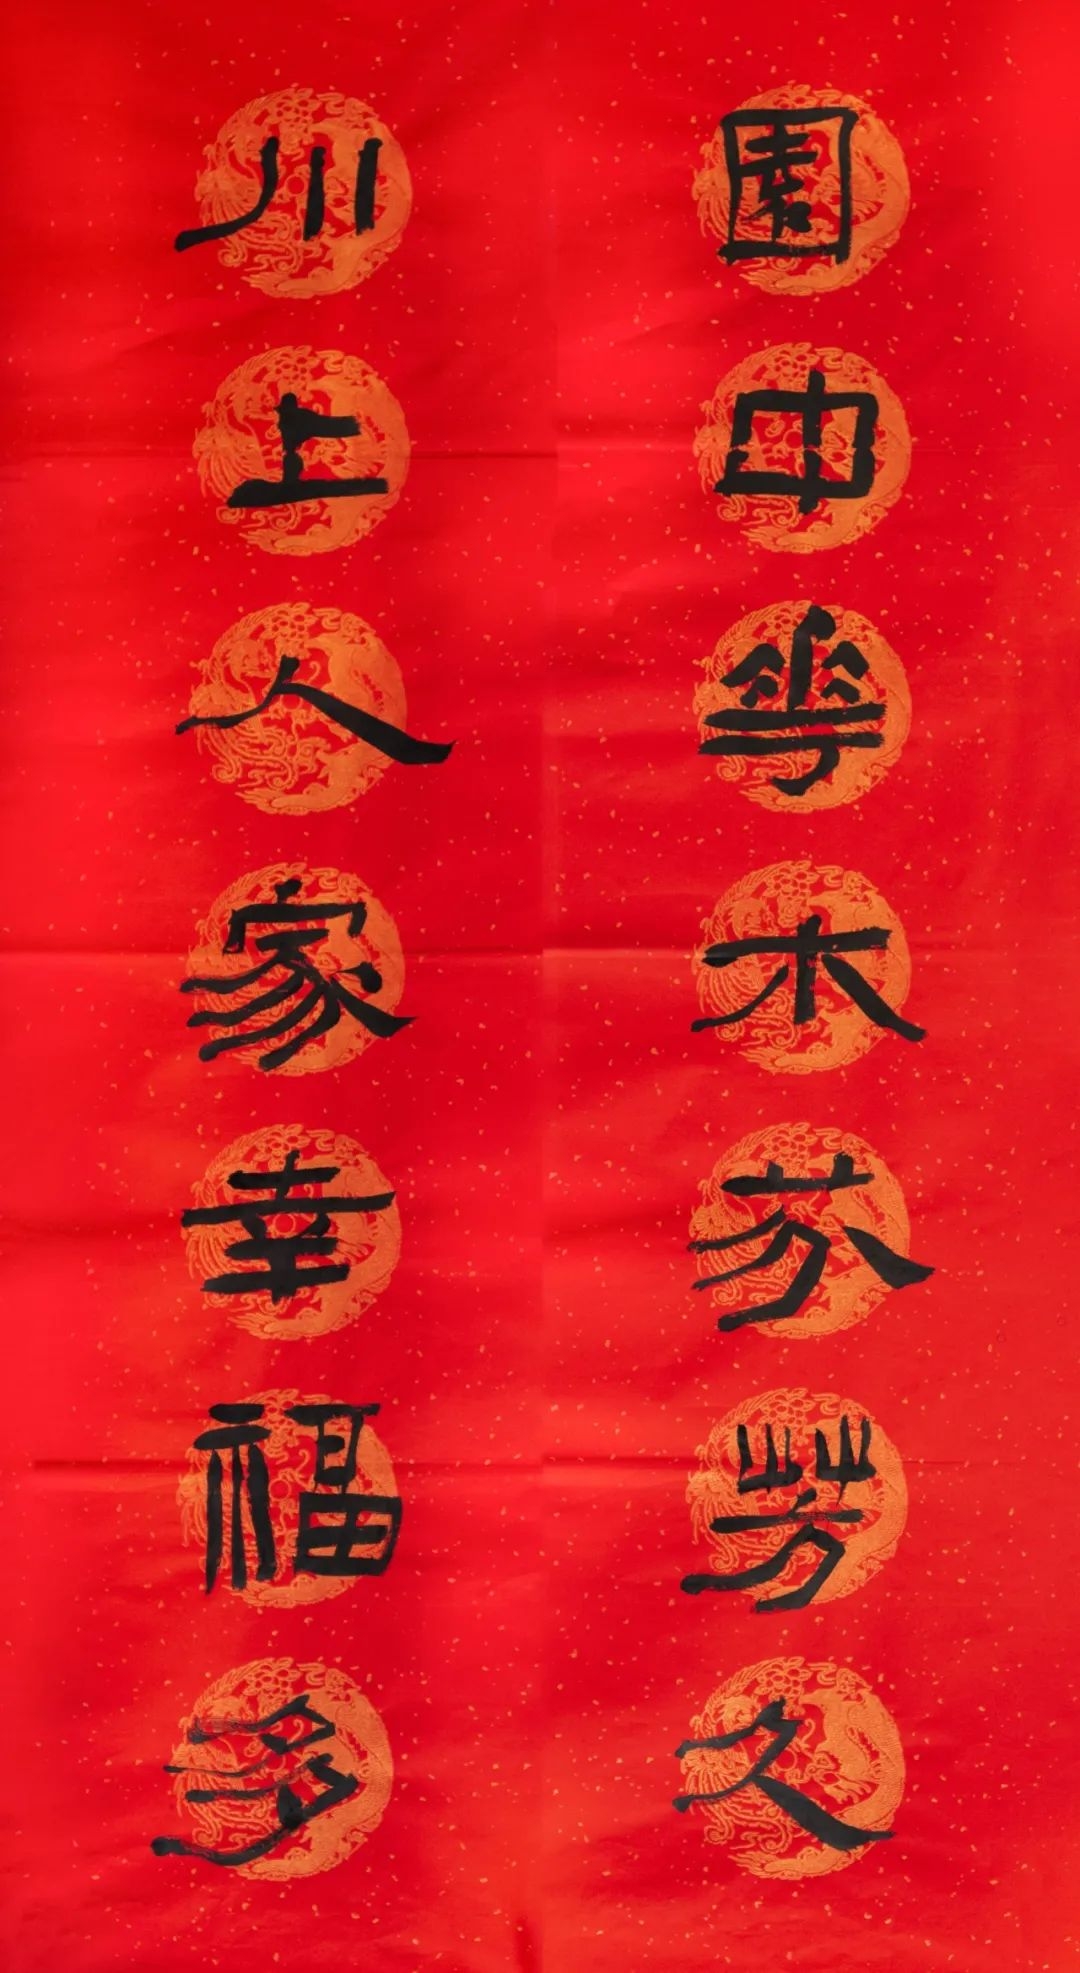 園中華木芬芳久
川上人家幸福多